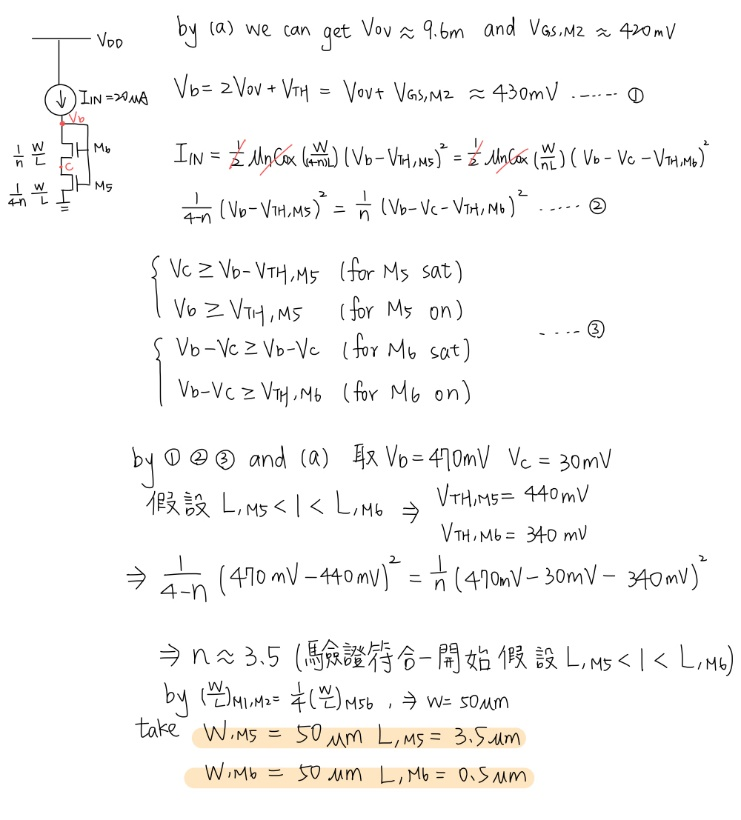 V_DD
I_IN = 20uA
V_b
1/n W/L
M_6
C
1/(4-n) W/L
M_5
by (a) we can get V_OV ≈ 9.6m and V_GS,M2 ≈ 420mV
V_b = 2V_OV + V_TH = V_OV + V_GS,M2 ≈ 430mV ...... ①
I_IN = 1/2 μnCox (W/(4-n)L) (V_b - V_TH,M5)² = 1/2 μnCox (W/nL) (V_b - V_C - V_TH,M6)²
1/(4-n) (V_b - V_TH,M5)² = 1/n (V_b - V_C - V_TH,M6)² ..... ②
V_C ≥ V_b - V_TH,M5 (for M5 sat)
V_b ≥ V_TH,M5 (for M5 on)
.... ③
V_b - V_C ≥ V_b - V_C (for M6 sat)
V_b - V_C ≥ V_TH,M6 (for M6 on)
by ① ② ③ and (a) 取 V_b = 470mV V_C = 30mV
假設 L,M5 < 1 < L,M6 ⇒ V_TH,M5 = 440mV
V_TH,M6 = 340 mV
⇒ 1/(4-n) (470 mV - 440 mV)² = 1/n (470mV - 30mV - 340mV)²
⇒ n ≈ 3.5 (驗證符合一開始假設 L,M5 < 1 < L,M6)
by (W/L)M1,M2 = 1/4 (W/L)M56 , ⇒ W = 50μm
take W,M5 = 50 μm L,M5 = 3.5μm
W,M6 = 50 μm L,M6 = 0.5μm